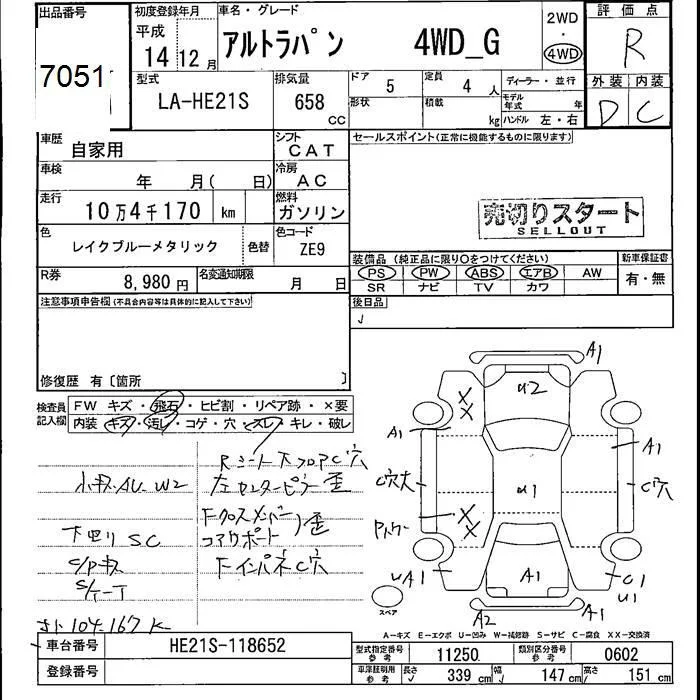 出品番号 初度登録年月 車名・グレード 2WD 評価点
平成 ・
7051 14 12 月 アルトラパン 4WD_G 4WD R
型式 排気量 ドア 定員 ディーラー・並行 外装 内装
LA-HE21S 658 5 4 人 モデル年式 年 D C
CC 形状 積載 kg ハンドル 左・右
車歴 シフト セールスポイント(正常に機能するものに限ります)
自家用 CAT
車検 冷房
年 月( 日) AC
走行 燃料
10万4千170 km ガソリン
売切りスタート
SELLOUT
色 色コード
レイクブルーメタリック 色替 ZE9
装備品(純正品に限り○をつけてください) 新車保証書
R券 名変通知期限 PS PW ABS エアB AW 有・無
8,980 円 月 日 SR ナビ TV カワ
注意事項申告欄(不具合内容等は具体的に記入して下さい) 後日品
修復歴 有〔箇所 〕
検査員 FW キズ・飛石・ヒビ割・リペア跡・×要
記入欄 内装 キズ・汚レ・コゲ・穴・スレ・キレ・破レ
Rシート下フロアC穴
小キズAU-W2 左センターピラー歪
Fクロスメンバー
コアサポート 歪
下回りSC
C/Pキズ FインパネC穴
S/T-T
メーター104,167K
A1
U2
A1 A1
C穴大 U1 C穴
UA1 A1 C1
U1
A2 A1
スペア
A-キズ E-エクボ U-凹み W-補修跡 S-サビ C-腐食 XX-交換済
車台番号 HE21S-118652 型式指定番号 参考 11250 類別区分番号 参考 0602
登録番号 車洋証明用 参考 長さ 339 cm 幅 147 cm 高さ 151 cm